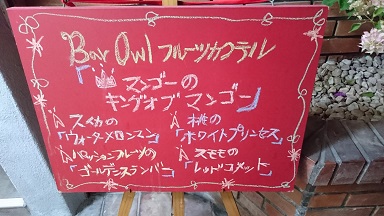 Bar Owl フルーツカクテル
マンゴーの
「キングオブマンゴー」
スイカの
「ウォーターメロンマン」
桃の
「ホワイトプリンセス」
パッションフルーツの
「ゴールデンステンバー」
スモモの
「レッドコメット」